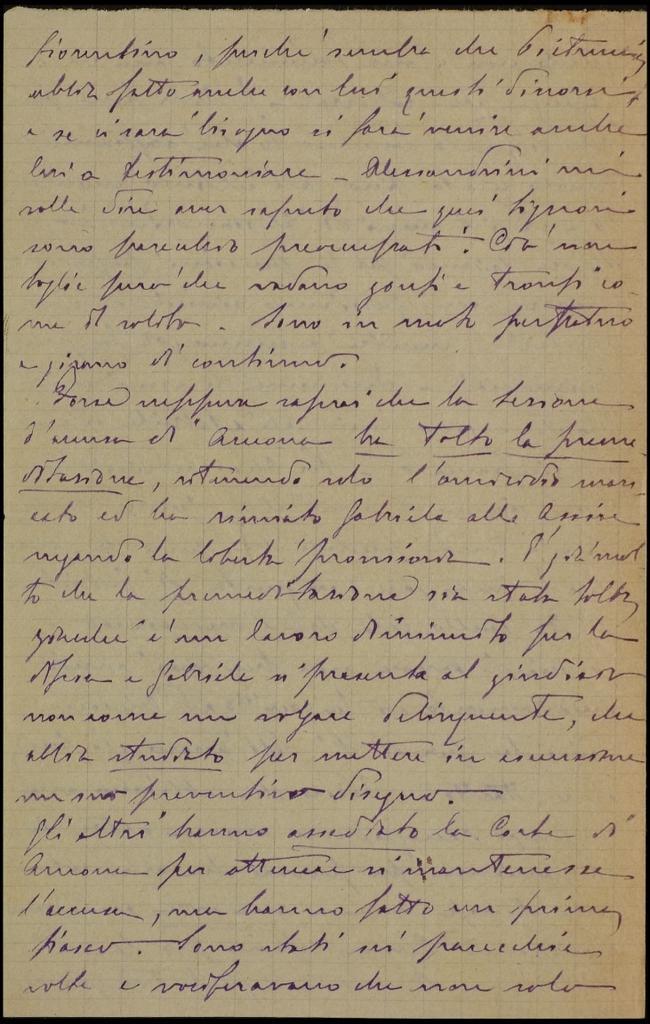 fiorentino, perché sembra che
abbia fatto anche con lui questi discorsi,
e se ci sarà bisogno si farà venire anche
lui a testimoniare - Alessandrini mi
volle dire aver saputo che quei signori
sono parecchio preoccupati. Ciò non
toglie però che vadano gonfi e tronfi co-
me il solito. Sono in moto perpetuo
e girano di continuo.
Forse neppure saprai che la Sezione
d'accusa di Ancona ha tolto la preme-
ditazione, ritenendo solo l'omicidio man-
cato ed ha rinviato Gabriele alle Assise
negando la libertà provvisoria. È già mol
to che la premeditazione sia stata tolta,
giacché è un lavoro diminuito per la
difesa e Gabriele si presenta al giudizio
non come un volgare delinquente, che
abbia studiato per mettere in esecuzione
un suo preventivo disegno.
Gli altri hanno assediato la Corte di
Ancona per ottenere si mantenesse
l'accusa, ma hanno fatto un primo
fiasco. Sono stati su parecchie
volte e vociferavano che non solo